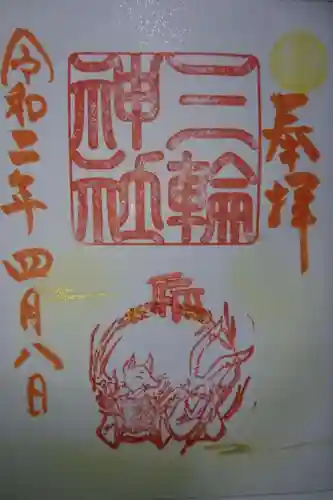 奉拝
三輪
神社
令和二年
四月八日